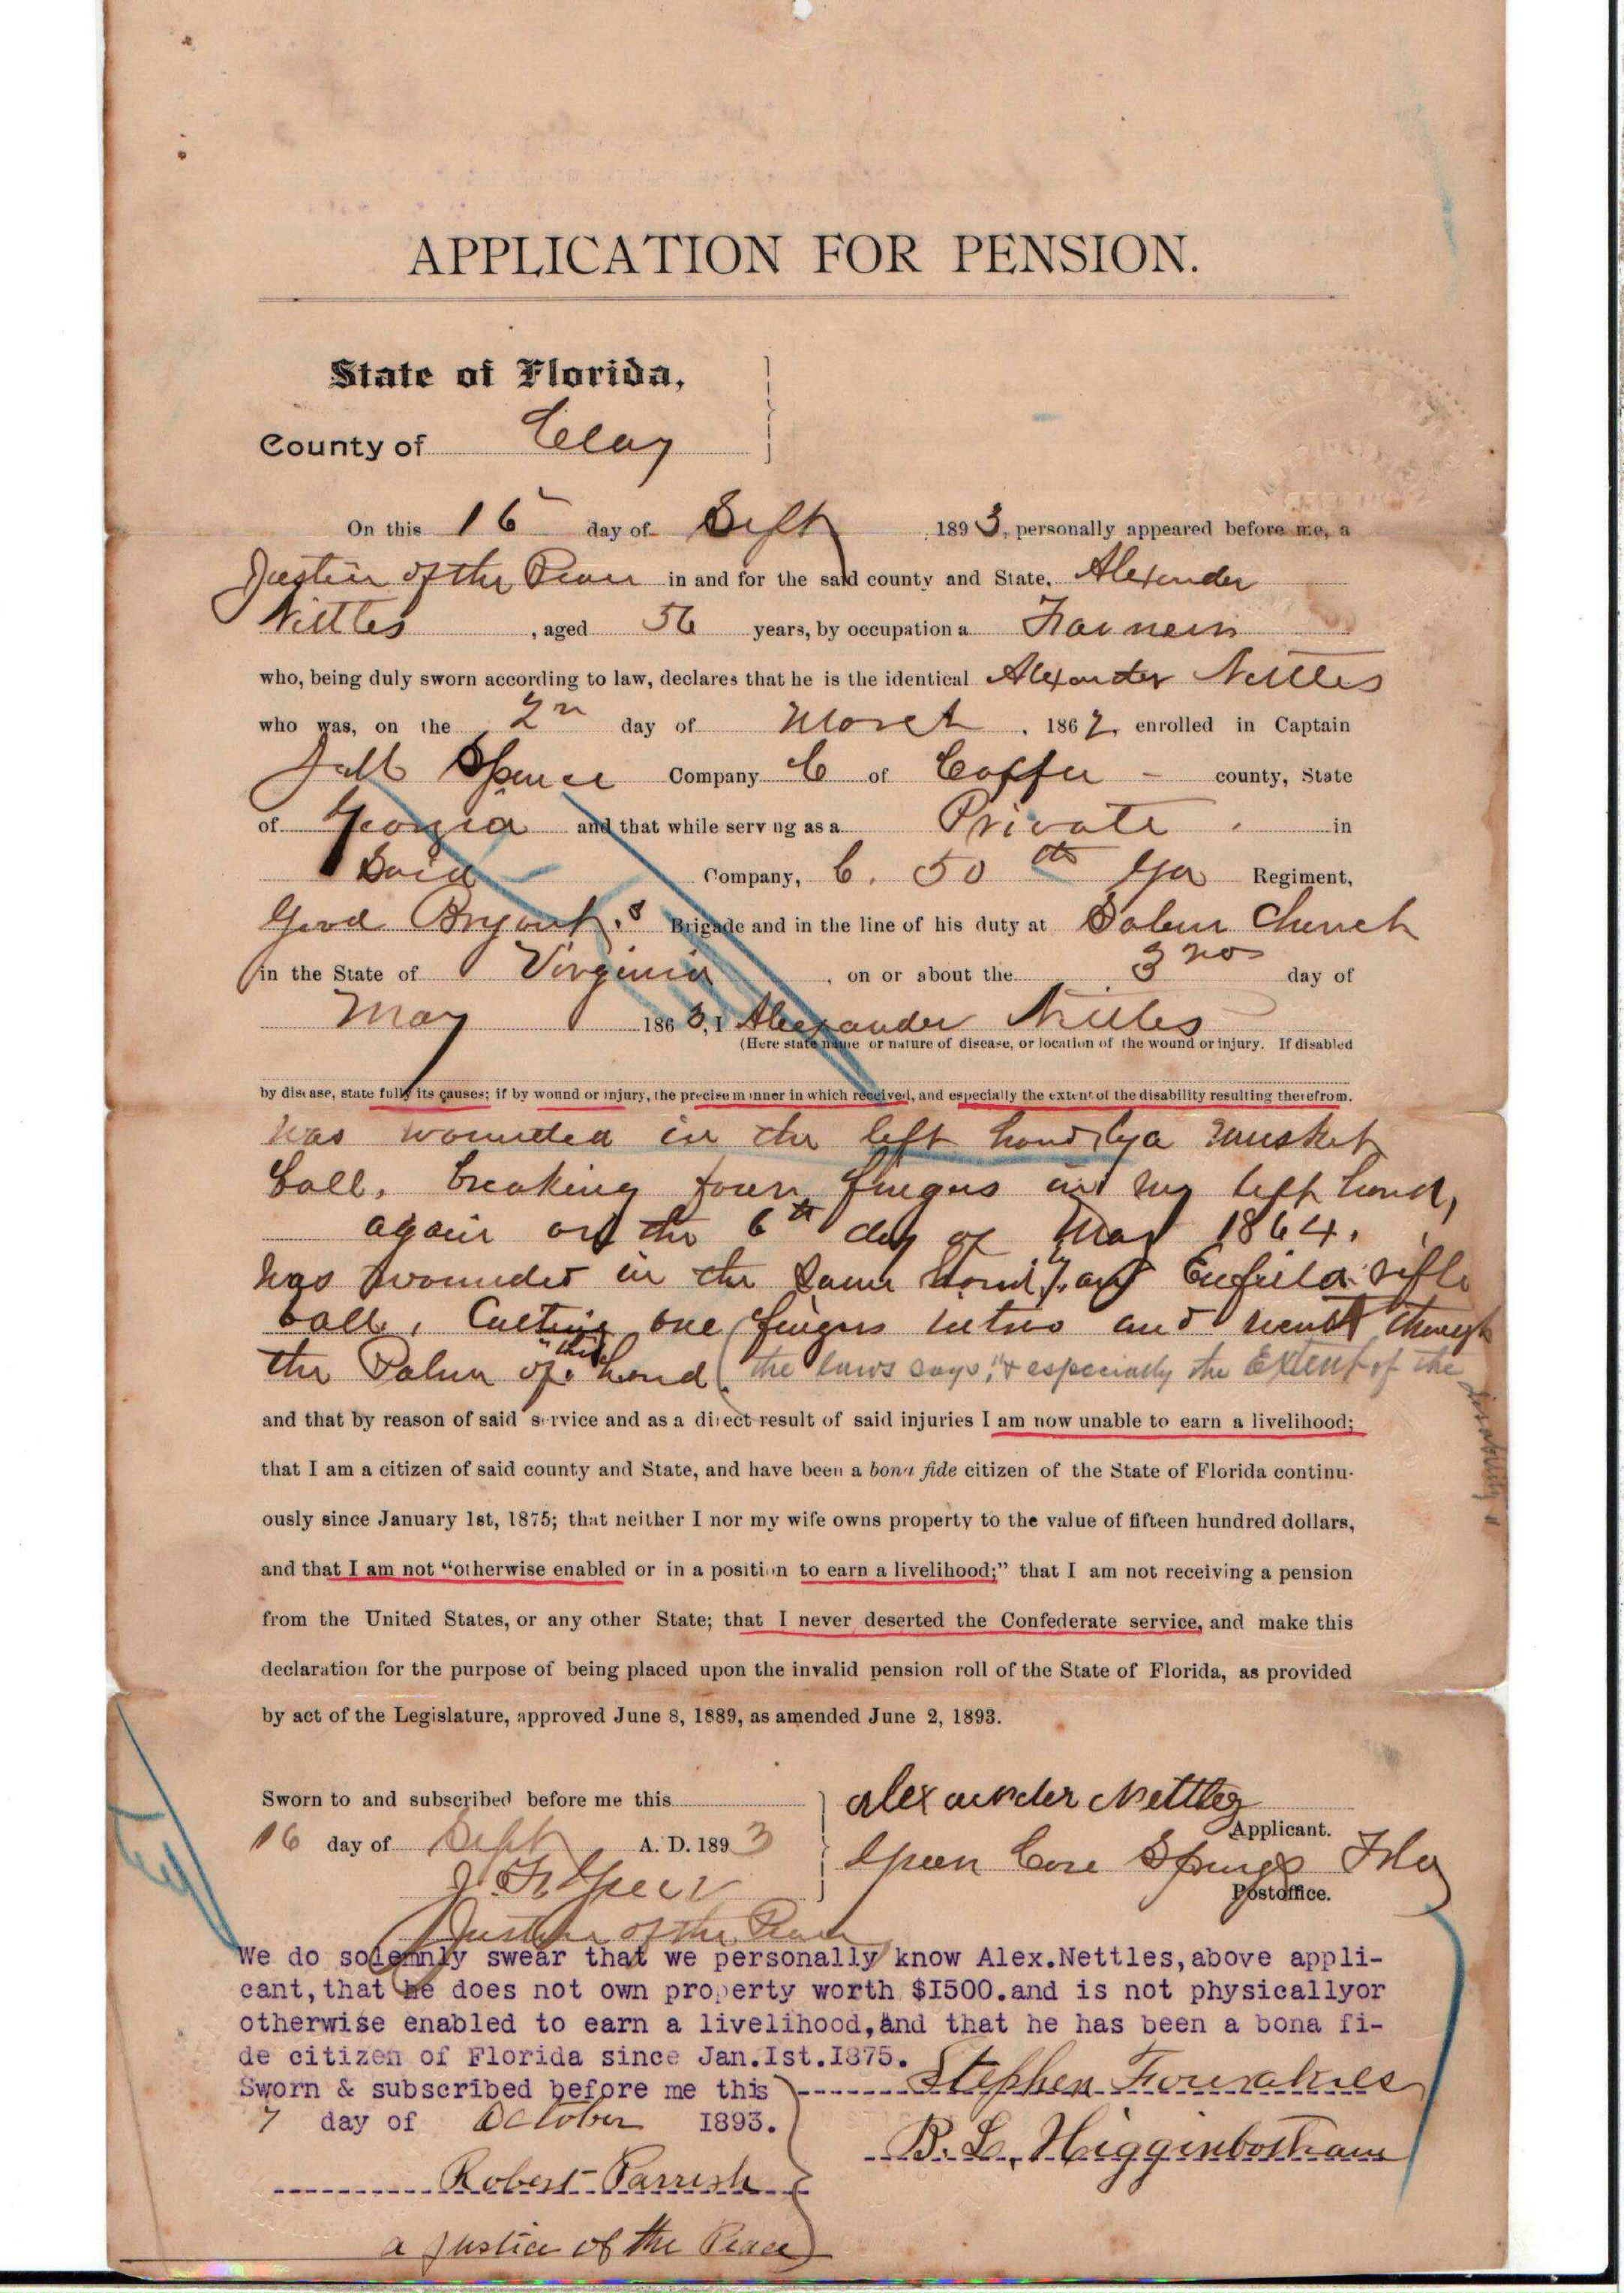 APPLICATION FOR PENSION.
State of Florida,
County of Clay
On this 16 day of Sept 1893, personally appeared before me, a
Justice of the Peace in and for the said county and State, Alexander
Nettles, aged 56 years, by occupation a Farmer
who, being duly sworn according to law, declares that he is the identical Alexander Nettles
who was, on the 2nd day of March, 1862, enrolled in Captain
Spence Company C of Coffee county, State
of Georgia and that while serving as a Private in
Said Company, C. 50th Ga Regiment,
Good Bryant's Brigade and in the line of his duty at Salem Church
in the State of Virginia, on or about the 3rd day of
May 1863, I Alexander Nettles
(Here state name or nature of disease, or location of the wound or injury. If disabled
by disease, state fully its causes; if by wound or injury, the precise manner in which received, and especially the extent of the disability resulting therefrom.
was wounded in the left hand by a musket
ball, breaking four fingers in my left hand,
again on the 6th day of May 1864.
was wounded in the same hand by an Enfield rifle
ball, Cutting one finger intwo and went through
the Palm of the hand (the laws says, "& especially the Extent of the
disability"
and that by reason of said service and as a direct result of said injuries I am now unable to earn a livelihood;
that I am a citizen of said county and State, and have been a bona fide citizen of the State of Florida continu-
ously since January 1st, 1875; that neither I nor my wife owns property to the value of fifteen hundred dollars,
and that I am not "otherwise enabled or in a position to earn a livelihood;" that I am not receiving a pension
from the United States, or any other State; that I never deserted the Confederate service, and make this
declaration for the purpose of being placed upon the invalid pension roll of the State of Florida, as provided
by act of the Legislature, approved June 8, 1889, as amended June 2, 1893.
Sworn to and subscribed before me this
alexander Nettles
Applicant.
16 day of Sept A. D. 1893
Green Cove Springs Fla
Postoffice.
J. F. Geer
Justice of the Peace
We do solemnly swear that we personally know Alex.Nettles,above appli-
cant,that he does not own property worth $I500.and is not physicallyor
otherwise enabled to earn a livelihood,and that he has been a bona fi-
de citizen of Florida since Jan.Ist.I875.
Stephen Fourakres
Sworn & subscribed before me this
7 day of October I893.
B. L. Higginbotham
Robert Parrish
a Justice of the Peace